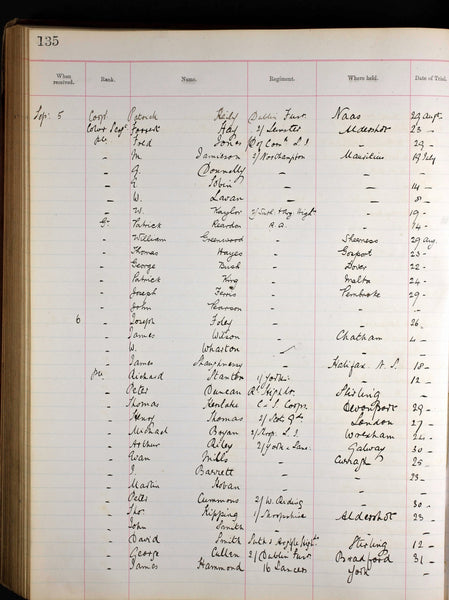 135
When received. Rank. Name. Regiment. Where held. Date of Trial.
Sep. 5 Corpl Patrick Kiely Dublin Fus. Naas 29 Augt
Color Sergt Forrest Hay 2/ Leinster Aldershot 23 -
Pte Fred Jones D. of Corn. L.I. - 29 -
- M. Jamieson 2/ Northampton Mauritius 19 July
- G. Donnelly - - -
- E. Tobin - - 14 -
- W. Lavan - - 8 -
- W. Naylor 2/ High. - 19 -
Gr Patrick Reardon R.A. - 14 -
- William Greenwood - Sheerness 29 Aug
- Thomas Hayes - Gosport 23 -
- George Bush - Dover 22 -
- Patrick King - Malta 24 -
- Joseph Ferris - Pembroke 29 -
- John Pearson - - -
6 - Joseph Foley - - 26 -
- James Wilson - Chatham 4 -
- W. Wharton - - -
- James Shaughnessy - Halifax N.S. 18 -
Pte Richard Stanton 1/ Yorks. - 12 -
- Peter Duncan Rl Highrs Stirling -
- Thomas C. & T. Corps. Devonport 29 -
- Henry Thomas 2/ Scots Gds London 27 -
- Michael Bryan 2/ Shrop. L.I. 24 -
- Arthur Riley 2/ York & Lanc. Galway 30 -
- Evan Mills - Curragh 25 -
- J. Barrett - - 23 -
- Martin Hoban - - -
- Peter Cummins 2/ W. Riding - 30 -
- Thos. Kipping 1/ Shropshire Aldershot 23 -
- John Smith - - -
- David Smith Suth. & High. Stirling 12 -
- George Cullen 2/ Dublin Fus. Bradford 31 -
- James Hammond 16 Lancers York -